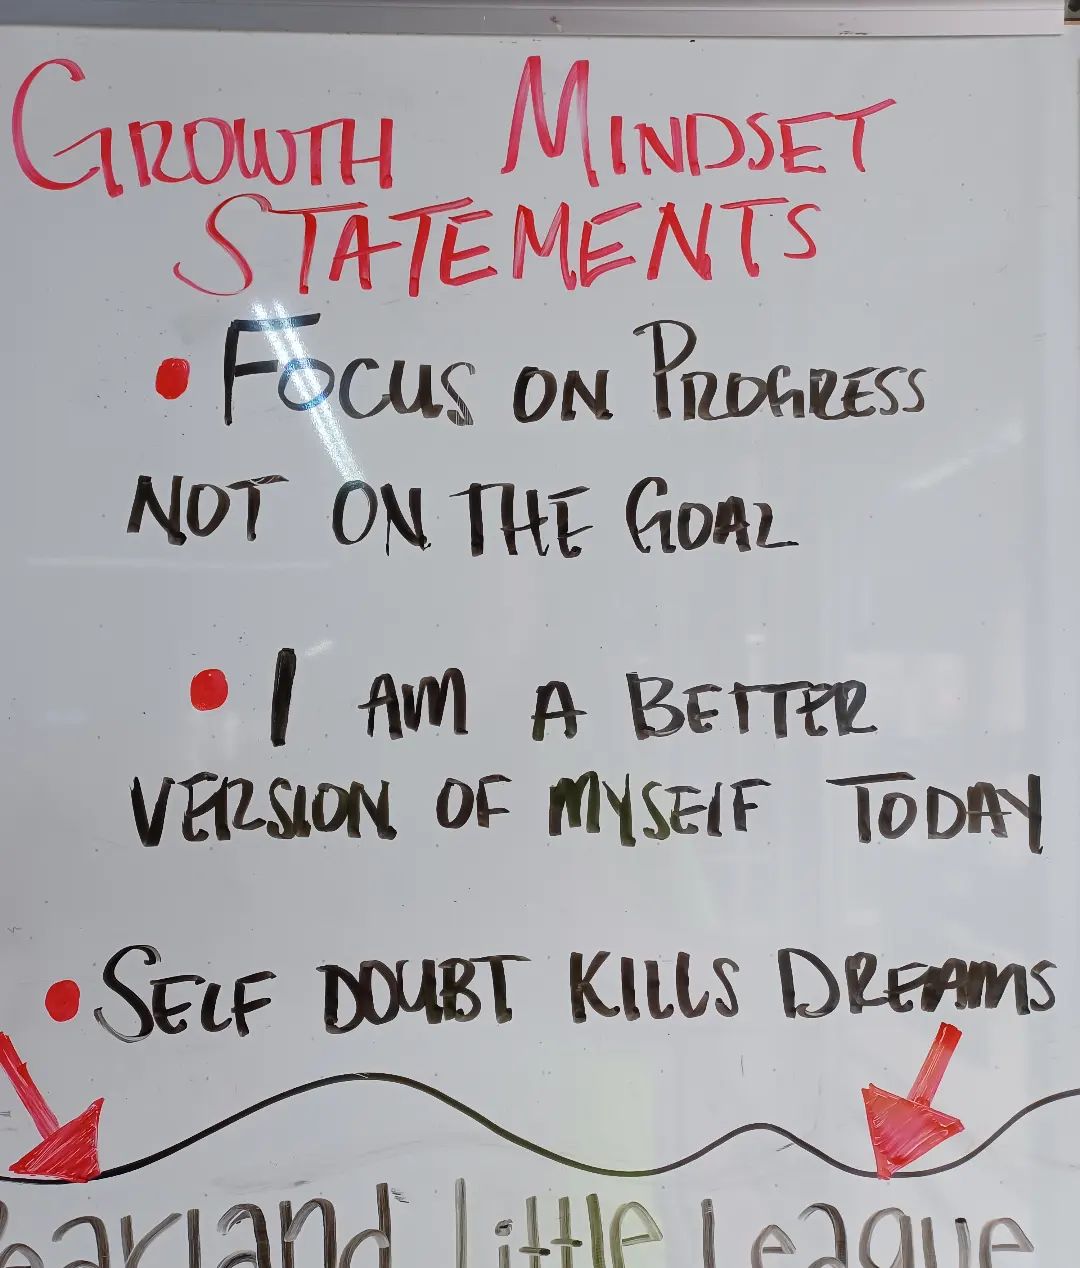 GROWTH MINDSET
STATEMENTS
• FOCUS ON PROGRESS
NOT ON THE GOAL
• I AM A BETTER
VERSION OF MYSELF TODAY
• SELF DOUBT KILLS DREAMS
earland little League